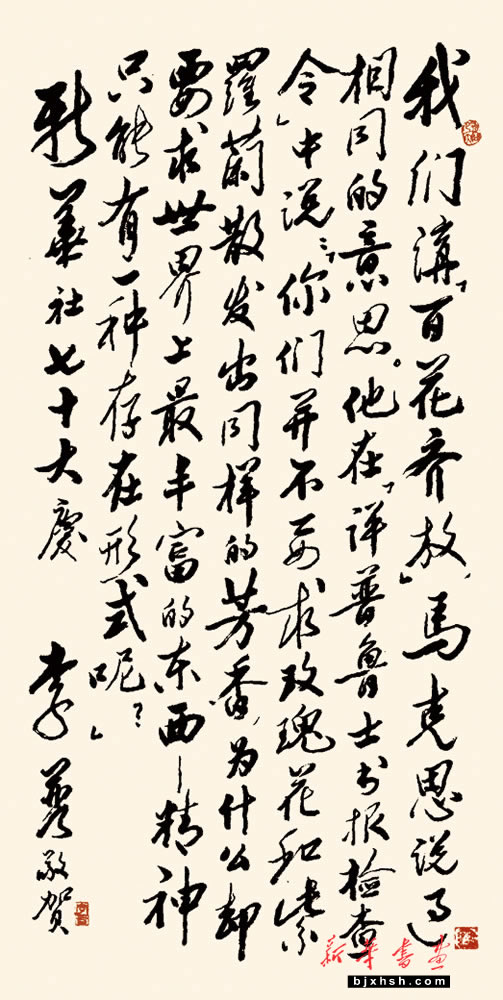 我们講「百花齐放」，馬克思说过
相同的意思。他在「评普鲁士书报检查
令」中说：「你们并不要求玫瑰花和紫
羅蘭散发出同样的芳香，为什么却
要求世界上最丰富的东西—精神
只能有一种存在形式呢？」
新華社七十大慶 李 敬贺
新华书画
bjxhsh.com